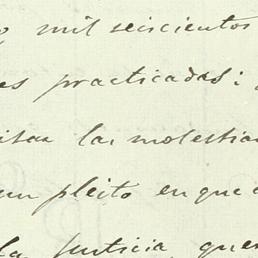 mil seiscientos
es practicadas;
las molestias
un pleito en que
la justicia que